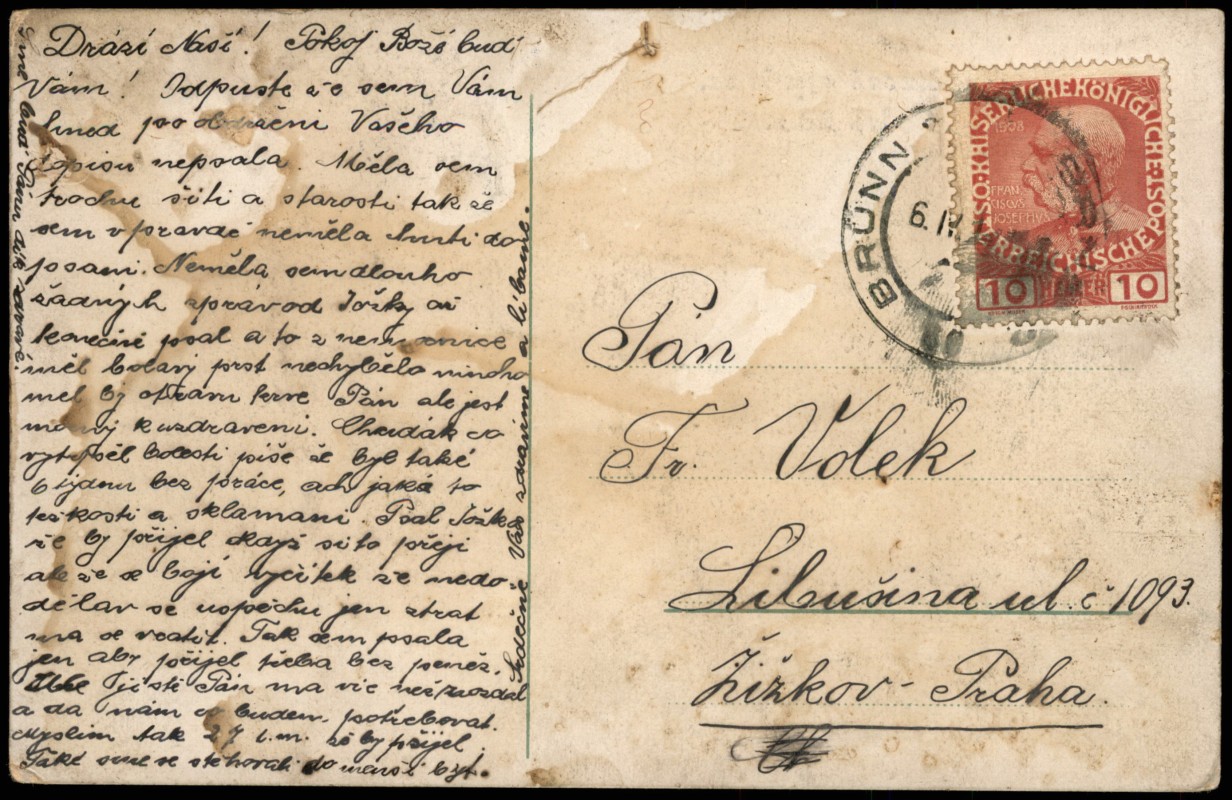 Drází Naší! Pokoj Boží budí
Vám! Odpuste že sem Vám
hned po obdržení Vašeho
dopisu nepsala. Měla sem
trochu šití a starosti tak že
sem vpravdě neměla chuti do
psaní. Neměla sem dlouho
žádných zpráv od Jožky až
konečně psal a to z nemocnice
měl bolavý prst nechybělo mnoho
měl by otravu krve Pán ale jest
mocný k uzdravení. Chudák co
vytrpěl bolesti píše že byl také
6 týdnu bez práce, ach jaké to
těžkosti a sklamani. Psal Jožka
že by přijel když si to přeji
ale že se bojí vyčítek že nedo-
dělav se uspěchu jen ztrat
ma se vratit. Tak sem psala
jen aby přijel třeba bez peněz,
jistě Pán ma víc než
a da nám co budem potřebovat.
Myslím tak 27 t.m. že by přijel.
Také sme se stehovali do menší byt.
Srdečně Vás zdravíme a líbáme.
Sme buď Pánu dík zdravé.
BRÜNN
6. IV
K.K. KAISERLICHE KÖNIGLICHE ÖSTERREICHISCHE POST
1908
FRAN
CISCVS
IOSEPHVS
10 HELLER 10
Pán
Fr. Volek
Libušina ul. č 1093.
Žižkov - Praha.